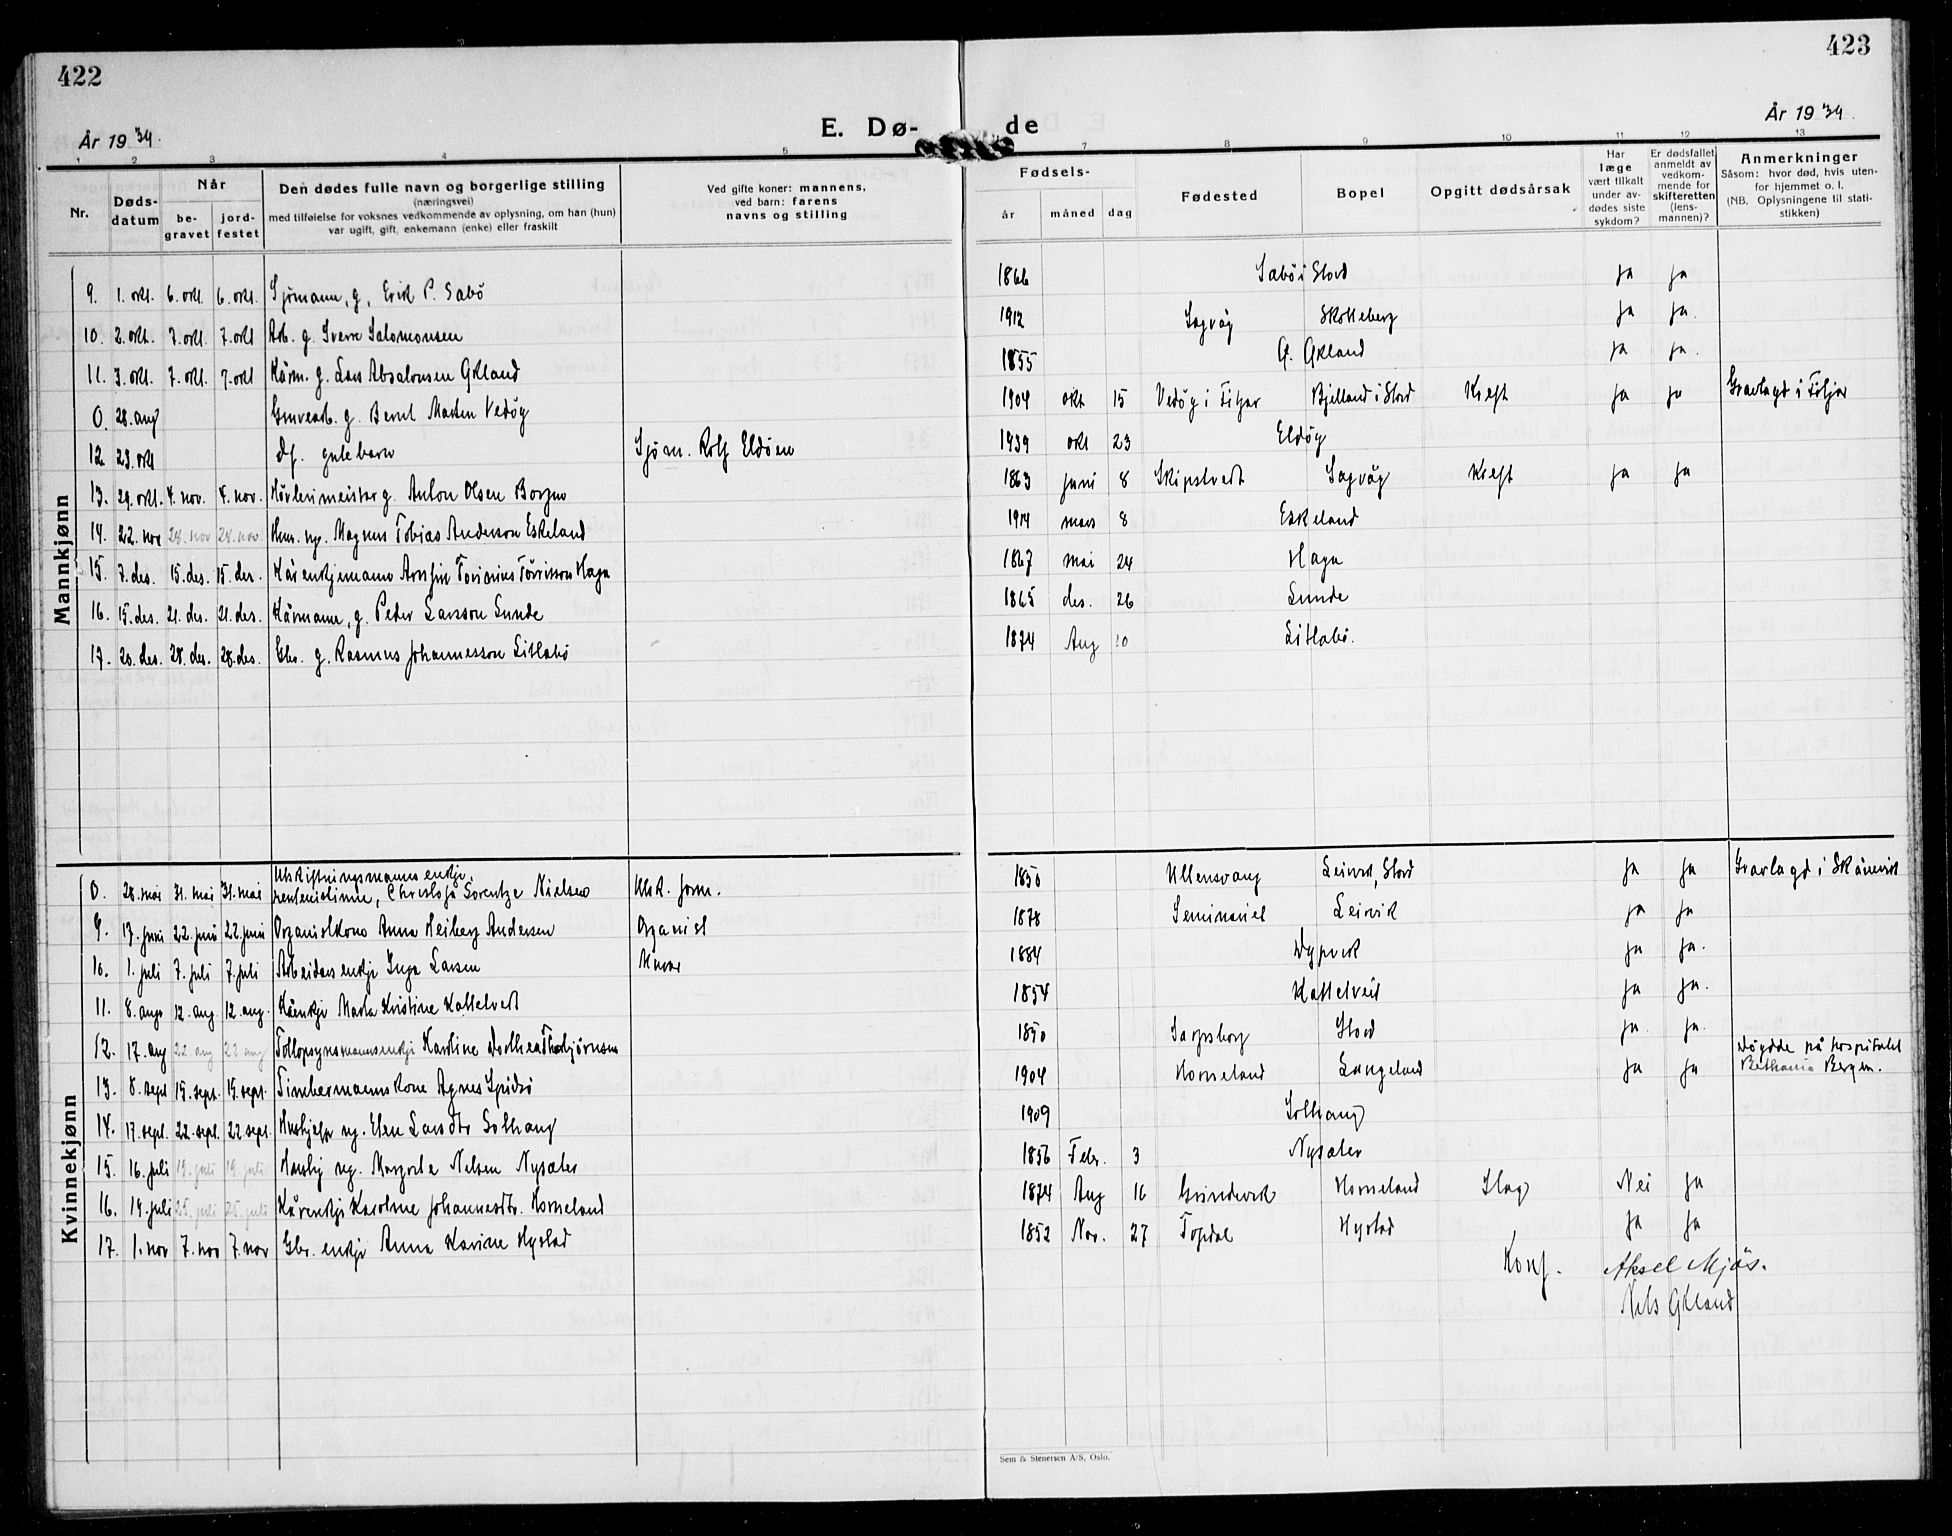 422
423
År 1939.
E. Dø-
de
År 1939.
1 2 3 4 5 7 8 9 10 11 12 13
Nr.
Døds-
datum
Når
be-
gravet
jord-
festet
Den dødes fulle navn og borgerlige stilling
(næringsvei)
med tilføielse for voksnes vedkommende av oplysning, om han (hun)
var ugift, gift, enkemann (enke) eller fraskilt
Ved gifte koner: mannens,
ved barn: farens
navns og stilling
Fødsels-
år måned dag
Fødested
Bopel
Opgitt dødsårsak
Har
læge
vært tilkalt
under av-
dødes siste
sykdom?
Er dødsfallet
anmeldt av
vedkom-
mende for
skifteretten
(lens-
mannen)?
Anmerkninger
Såsom: hvor død, hvis uten-
for hjemmet o. l.
(NB. Oplysningene til stati-
stikken)
Mannkjønn
9. 1. okt. 6. okt. 6. okt. Sjømann, g, Erik P. Sabø 1866 Sabø i Stord ja ja
10. 2. okt. 7. okt. 7. okt Arb. g. Sverre Salomonsen 1912 Sagvåg Skotteberg ja ja.
11. 3. okt. 7. okt. 7. okt Kårm. g. Lars Absalonsen Økland 1855 Ø. Økland ja ja.
0. 28. aug Gruvearb. g. Bernt Marten Vedøy 1904 okt 15 Vedøy i Fitjar Bjelland i Stord Kreft ja ja Gravlagd i Fitjar
12 23. okt df. gutebarn Sjøm. Rolf Eldøen 1939 okt 23 Eldøy
13. 29. okt. 4. nov. 4. nov. Høvlerimeister g. Anton Olsen 1863 juni 8 Skipstvedt Sagvåg Kreft ja ja
14. 22. nov 28. nov 28. nov. Magnus Tobias Anderson Eskeland 1914 mars 8 Eskeland
15. 7. des. 15. des. 15. des. Kårenkjemann Arnfin Torinius Tørrisson Haga 1867 mai 24 Haga
16. 15. des. 21. des. 21. des. Kårmann, g. Peder Larsson Sunde 1865 des. 26 Sunde
17. 20. des. 28. des. 28. des. Gbr. g. Rasmus Johannesson Litlabø 1874 Aug 10 Litlabø.
Kvinnekjønn
0. 28. mai 31. mai 31. mai Utskiftningsmanns enkje,
pensionistinne, Christofa Lorentze Nielsen Utsk. form. 1850 Ullensvang Leirvik, Stord ja ja Gravlagd i Skånevik
9. 17. juni 22. juni 22. juni Organistkona Anna Heiberg Andersen Organist 1878 Seminariet Leirvik ja ja
10. 1. juli 7. juli 7. juli Arbeidars enkje Inga Larsen Murar 1884 Dypvik ja ja.
11. 8. aug. 12. aug. 12. aug. Kårenkje Marta Kristine Kattelveit 1854 Kattelveit ja ja.
12. 17. aug 22 aug 22 aug Tollopsynsmannsenkje Karoline Dorthea Thorbjørnsen 1850 Sarpsborg Stord ja ja.
13. 8. sept 15. sept. 15. sept. Timbermannskone Agnes Spidsø 1904 Horneland Langeland ja ja Døydde på hospitalet
Bethania Bergen.
14. 17. sept. 22. sept. 22 sept. Hushjelp ug. Elen Larsdtr Solhaug 1909 Solhaug
15. 16. juli 19. juli 19. juli ug. Margrete Nelsen Nysæter 1856 Febr. 3 Nysæter
16. 19. juli 25. juli 25. juli Kårenkje Karoline Johannesdtr. Horneland 1874 Aug 16 Grindevik Horneland Slag Nei ja
17. 1. nov 7. nov 7. nov Gbr. enkje Anna Karine Hystad 1852 Nov. 27 Tysdal Hystad ja ja
Konf. Aksel Mjøs.
Nels Økland
Sem & Stenersen A/S, Oslo.